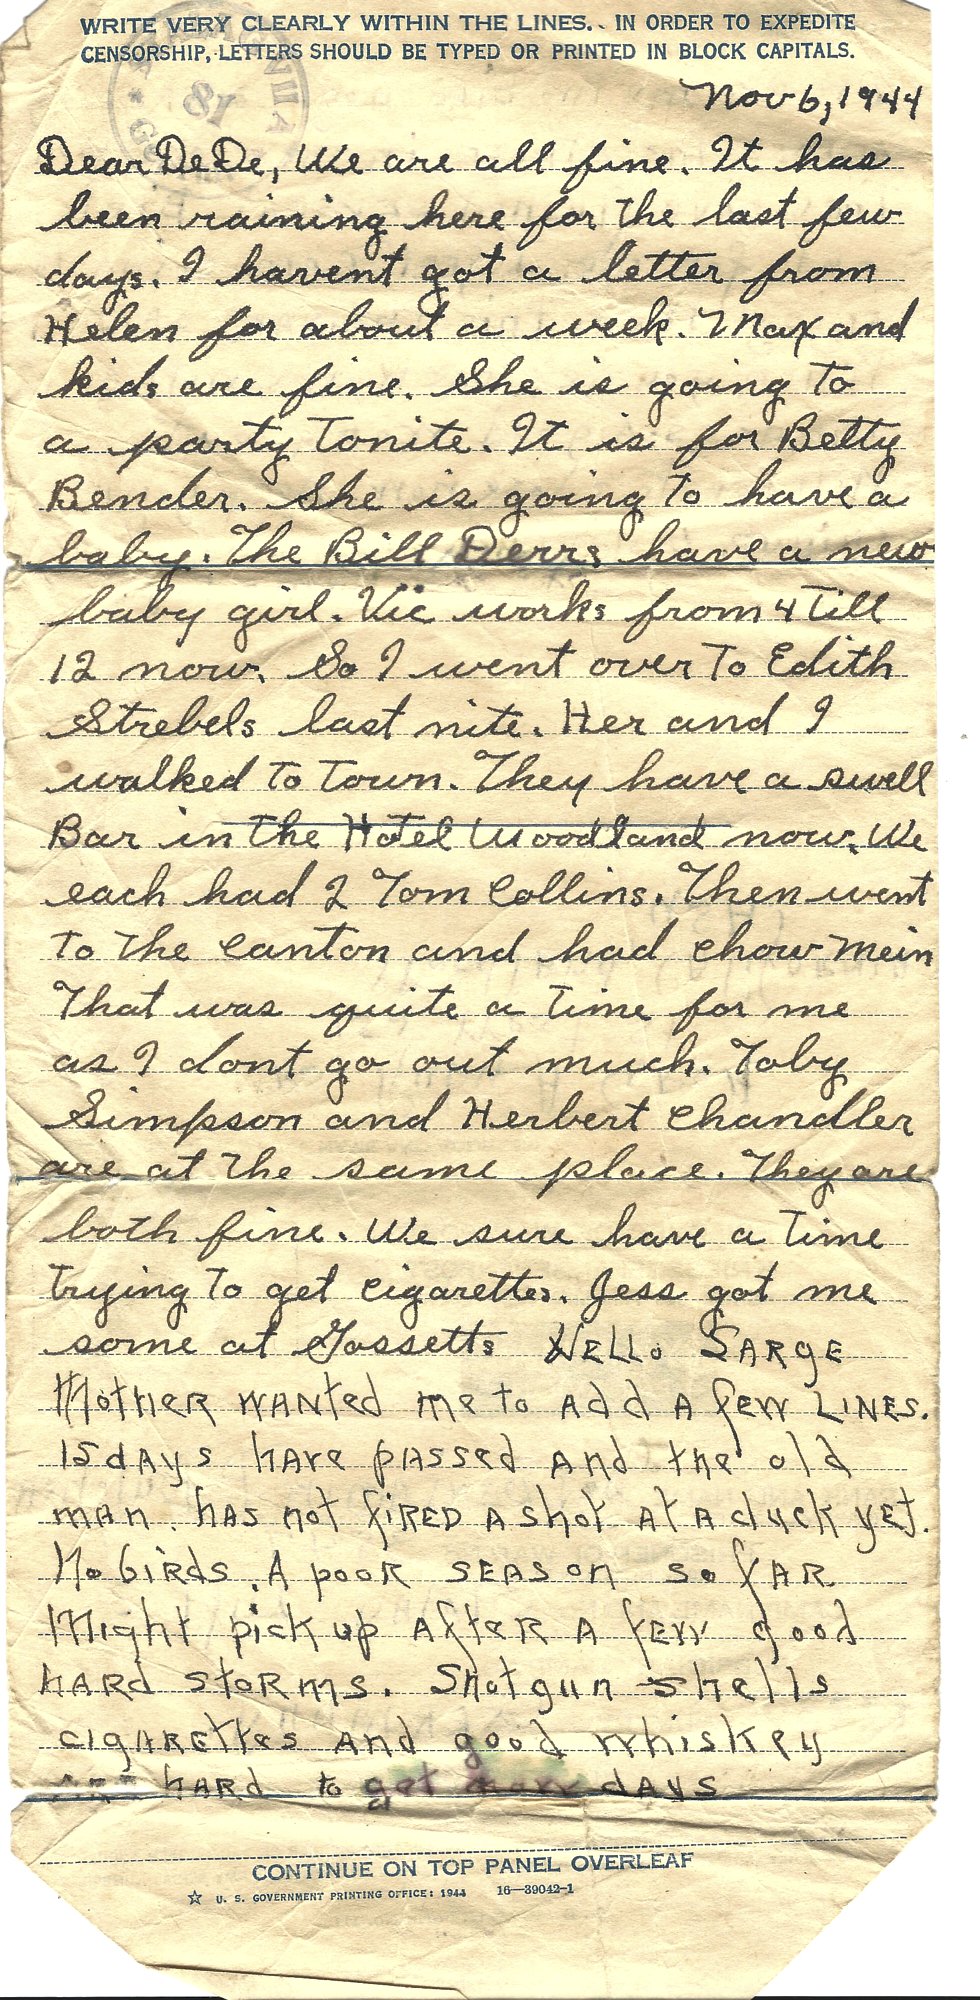 WRITE VERY CLEARLY WITHIN THE LINES. IN ORDER TO EXPEDITE
CENSORSHIP, LETTERS SHOULD BE TYPED OR PRINTED IN BLOCK CAPITALS.
18
Nov 6, 1944
Dear DeDe, We are all fine. It has
been raining here for the last few
days. I havent got a letter from
Helen for about a week. Max and
kids are fine. She is going to
a party tonite. It is for Betty
Bender. She is going to have a
baby. The Bill Derrs have a new
baby girl. Vic works from 4 till
12 now. So I went over to Edith
Strebels last nite. Her and I
walked to town. They have a swell
Bar in the Hotel Woodland now. We
each had 2 Tom Collins. Then went
to the Canton and had chow mein
That was quite a time for me
as I dont go out much. Toby
Simpson and Herbert Chandler
are at the same place. They are
both fine. We sure have a time
trying to get cigarettes. Jess got me
some at Gossetts HELLO SARGE
MOTHER WANTed me to Add A few LINES.
15 dAys hAve pAssed ANd the old
mAn. hAS not fIRED A shot At A duck yet.
No bIRdS. A pooR SEASon So fAR
Might pick up AfteR A few good
hARd stoRms. Shotgun shells
cIgARettes And good whiskey
hARD to get dAys
CONTINUE ON TOP PANEL OVERLEAF
☆ U. S. GOVERNMENT PRINTING OFFICE: 1944 16—39042-1